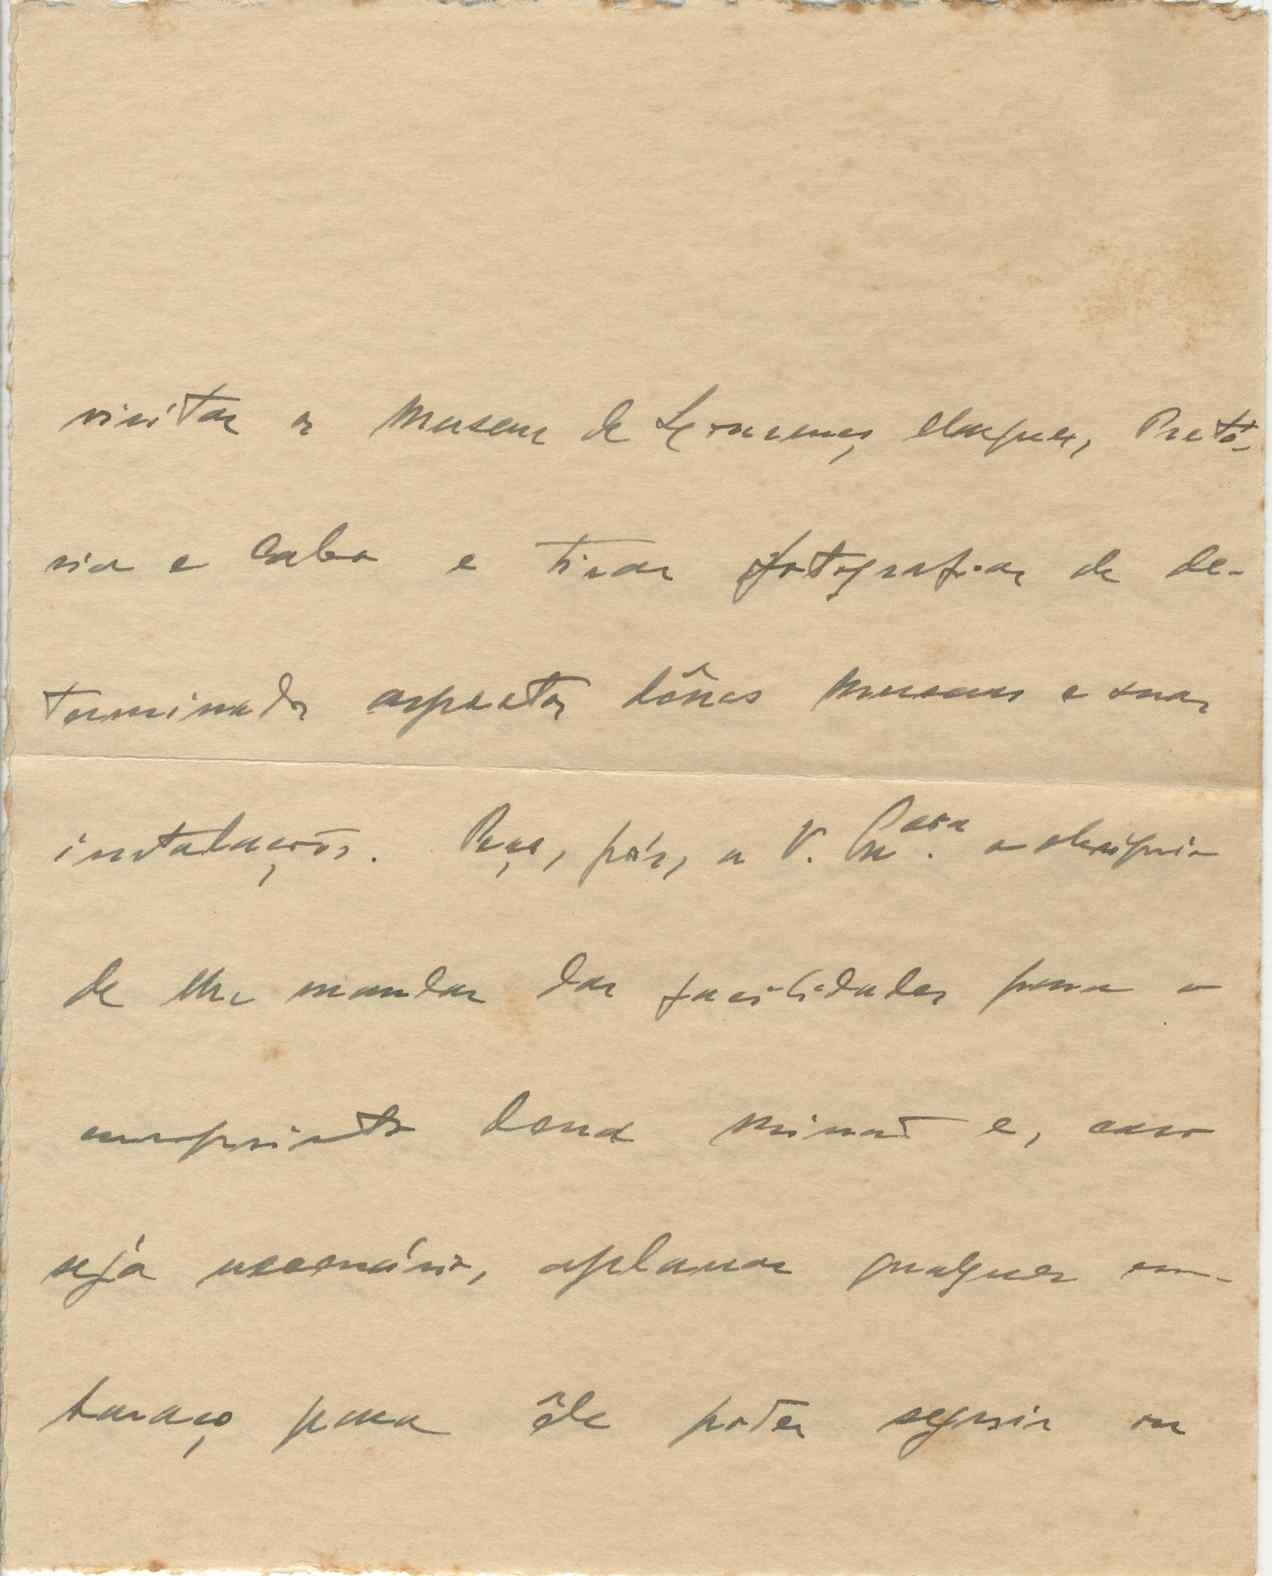 visitar os Museus de Lourenço Marques, Pretó-
ria e Cabo e tirar fotografias de de-
terminados aspectos dêsses Museus e suas
instalações. Peço, pois, a V. Ex.cia o obséquio
de lhe mandar dar facilidades para o
cumprimento dessa missão e, caso
seja necessário, aplanar qualquer em-
baraço para êle poder seguir ou